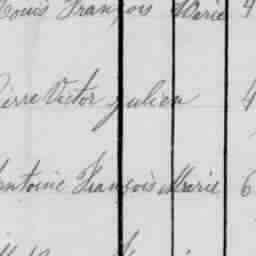 Louis François Marie 4
Pierre Victor Julien 4
Antoine François Marie 6